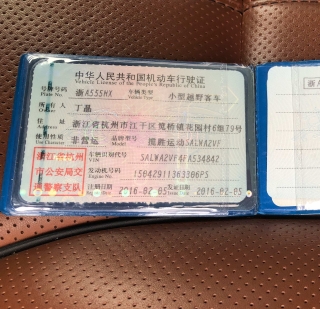 中华人民共和国机动车行驶证
Vehicle License of the People's Republic of China
号牌号码 浙A555MX 车辆类型 小型越野客车
Plate No. Vehicle Type
所有人 丁晶
Owner
住址 浙江省杭州市江干区笕桥镇花园村6组79号
Address
使用性质 非营运 品牌型号 揽胜运动SALWA2VF
Use Character Model
浙江省杭州 车辆识别代号 SALWA2VF4FA534842
VIN
市公安局交 发动机号码 15042911363306PS
Engine No.
通警察支队 注册日期 2016-02-05 发证日期 2016-02-05
Register Date Issue Date